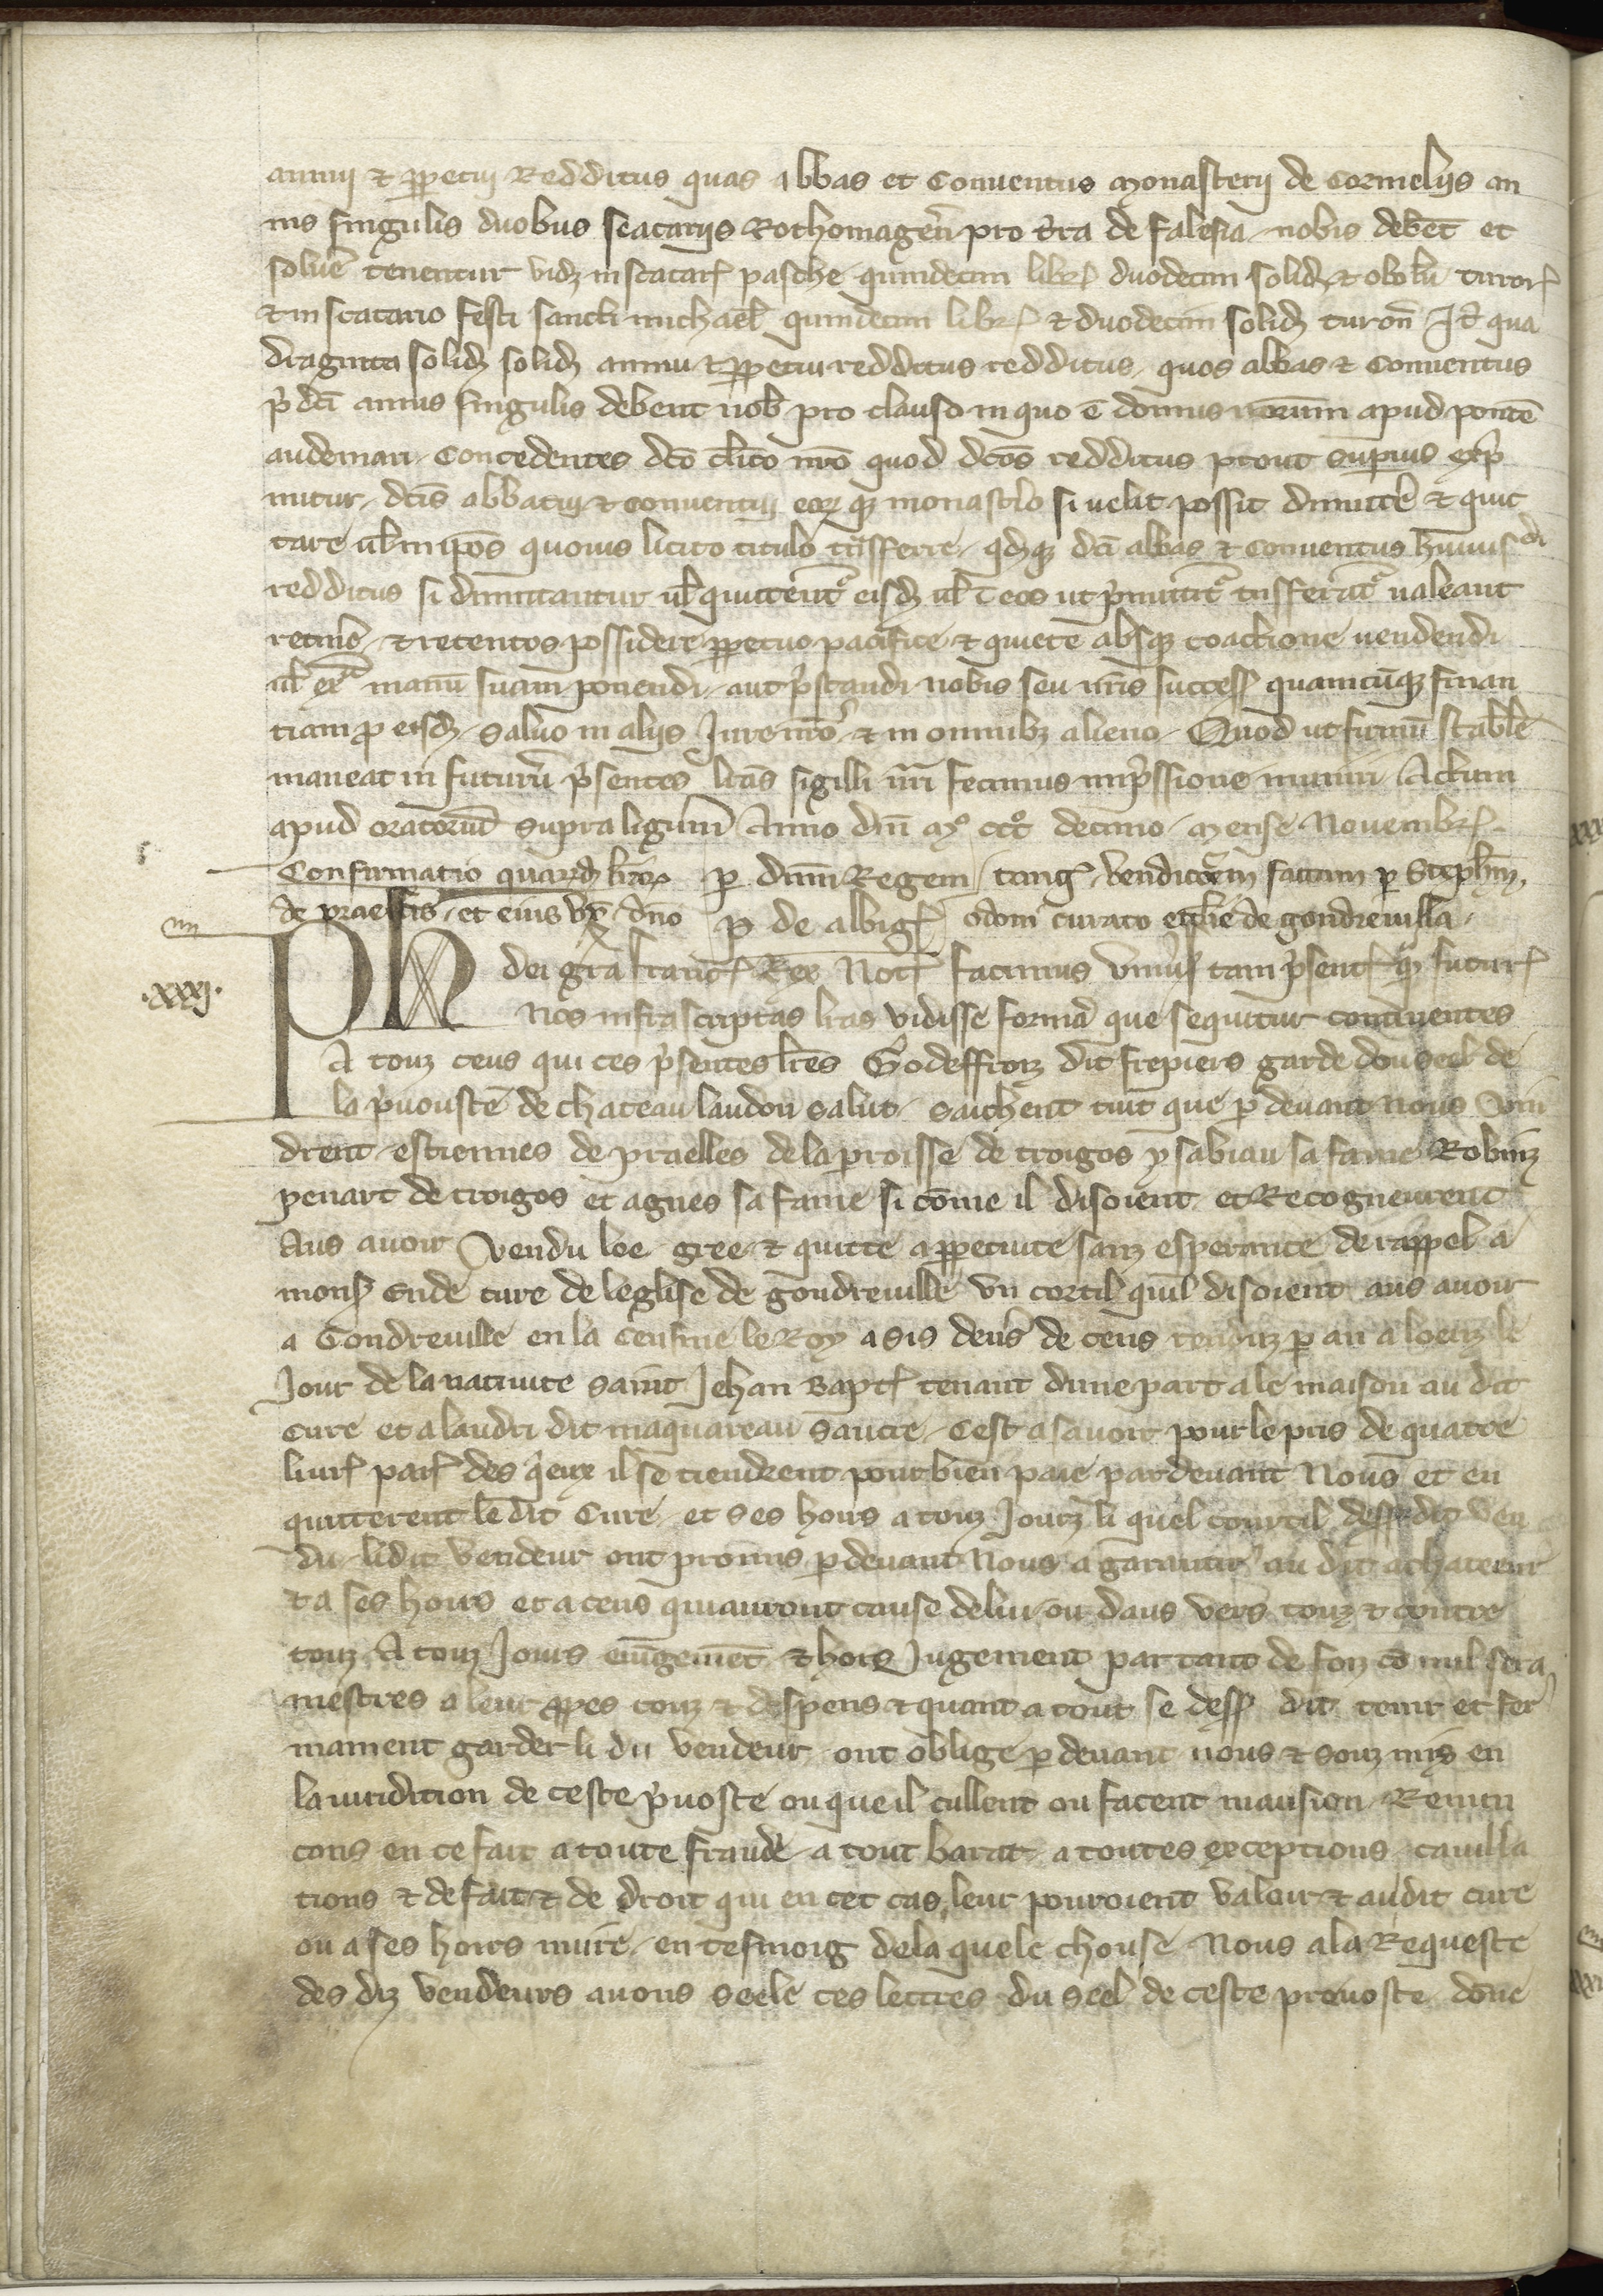 annui et ꝑpetui Redditus quas abbas et Conuentus monasterii de Cormeliis an
nis singulis duobus scacariis Rothomageñ pro t̃ra de falesia nobis debẽt et
soluẽ tenentur vidȝ in scacar̃ pasche quindecim libr̃ duodecim solidȝ et obolũ turoñ
et in scacario festi sancti michael̃ quindecim libr̃ et duodecim solidȝ turoñ It̃ qua
draginta solidȝ solidȝ annui et ꝑpetui redditus redditus quos abbas et Conuentus
p̃dc̃i annis singulis debent nob̃ pro clauso in quo ẽ domus nor̃um apud pontẽ
audemari Concedentes dc̃o cl̃ico nr̃o quod dc̃os redditus ꝓut sup̃ius exp̃
mitur dc̃is abbati et conuentui eoꝝ qȝ monast̃io si uelit possit dimittẽ et quit
tare ul̃ in ip̃os quouis licito titulo tr̃sferre qdȝqȝ dc̃i abbas et Conuentus hmus̃di
redditus si dimittantur ul̃ quittent̃ eisdȝ ul̃ ĩ eos ut p̃mittit̃ tr̃sferãt̃ ualeant
retinẽ et retentos possidere ꝑpetuo pacifice et quiete absqȝ coactione uendendi
ul̃ ext̃ manũ suam ponendi aut p̃standi nobis seu nr̃is success̃ quamcũqȝ finan
tiam ꝓ eisdȝ saluo in aliis Jure nr̃o et in omnibȝ alieno Quod ut firmũ stabile
maneat in futurũ p̃sentes lr̃as sigilli nr̃i fecimus imp̃ssione muniri Actum
apud oratoriũ supra ligium Anno dñi mº cccº decimo mense Nouembr̃.
Confirmatio quarũdȝ lr̃aꝝ ꝑ dñm Regem tang̃ vendicõem factam ꝑ Steph̃m
de praellis et eius vx̃ dño ꝑ de albig̃ odoni curato ecc̃lie de gondreuilla
iiii
.xxxj.
Ph dei gr̃a francoꝝ Rex Not̃ facimus Vniũsis tam p̃sent̃ qȝ futur̃
Nos infrascriptas lr̃as vidisse formã que sequitur continentes
A touz ceus qui ces p̃sentes lr̃es Godeffroiz dit frepiers garde dou seel de
la p̃uouste de chateaulandon salut saichent tuit que ꝑ deuant nous Vin
drent estiennes de praelles de la ꝑroisse de troigos ysabiau sa fame Robinz
penart de troigos et agnes sa fame si cõme il disoient et Recogneurent
Aus auoir vendu loe gree et quitte a ꝑpetuite sanz esperance de rappel a
monsȝ Eude cure de leglise de gondreuille vn cortil quil disoient aus auoir
a Gondreuille en la Censiue le Roy a sis deniers de cens renduz ꝑ an a loeuz le
Jour de la natiuite saint Jehan Bapt̃ tenant dune part a le maison au dit
Cure et a landri dit maquareau Sancre Cest a sauoir pour le pris de quatre
liur̃ par̃ des queux il se tiendrent pour bien paie par deuant Nous et en
quitterent le dit Cure et ses hoirs a touz Jourz li quel courtil dess dit ven
du li dit vendeur ont promis ꝑ deuant Nous a garantir au dit achateeur
et a ses hoirs et a ceus qui auront cause de lui ou daus vers touz et contre
touz A touz Jours en iugemẽt et hors Jugement par tant de foiz cõ mil sera
mestres a leur ꝓpes couz et despens et quant a tout se dess dit tenir et fer
mament garder li dit vendeur ont oblige ꝑ deuant nous et souz mis en
la iuridition de ceste p̃uoste ou que il cullent ou facent mansion Renun
cons en ce fait a toute fraude a tout barat a toutes exceptions cauilla
tions et de fait et de droit qui en cet cas leur pouroient valoir et audit cure
ou a ses hoirs nuire en tesmoig de la quele chouse Nous a la Requeste
des diz vendeurs auons seele ces lettres du seel de ceste preuoste done